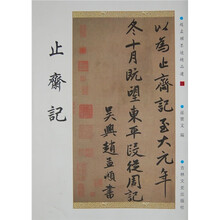 以為止齋記至大元年
冬十月既望東平段從周記
吳興趙孟頫書
止齋記